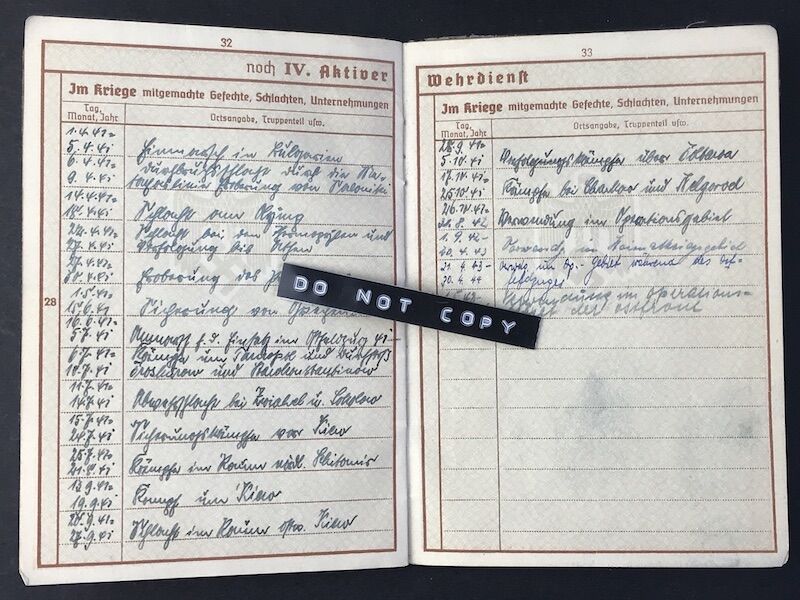 32
noch IV. Aktiver
Im Kriege mitgemachte Gefechte, Schlachten, Unternehmungen
Tag, Monat, Jahr
Ortsangabe, Truppenteil usw.
1.4.41-
5.4.41
Einmarsch in Bulgarien
6.4.41-
9.4.41
Durchbruchsschlacht durch die Me-
taxaslinie Eroberung von Saloniki
14.4.41-
18.4.41
Schlacht am Olymp
24.4.41-
27.4.41
Schlacht bei den Thermopylen und
Verfolgung bis Athen
27.4.41
Eroberung des
1.5.41-
Sicherung von
28
5.7.41
Anmarsch z. Einsatz im Ostfeldzug 41
6.7.41-
10.7.41
Kämpfe um und
und
11.7.41-
14.7.41
Abwehrschlacht bei Zwiahel u. Sokolow
15.7.41-
24.7.41
Sicherungskämpfe vor Kiew
25.7.41-
21.8.41
Kämpfe im Raum nördl. Shitomir
19.9.41
Kampf um Kiew
27.9.41
Schlacht im Raum ostw. Kiew
33
Wehrdienst
Im Kriege mitgemachte Gefechte, Schlachten, Unternehmungen
Tag, Monat, Jahr
Ortsangabe, Truppenteil usw.
28.9.41-
5.10.41
Verfolgungskämpfe über
17.10.41-
25.10.41
Kämpfe bei Charkow und Belgorod
26.10.41-
31.8.42
Verwendung im Operationsgebiet
1.9.42-
20.4.43
21.4.43-
20.4.44
Verwendung im Operations-
gebiet der Ostfront
DO NOT COPY